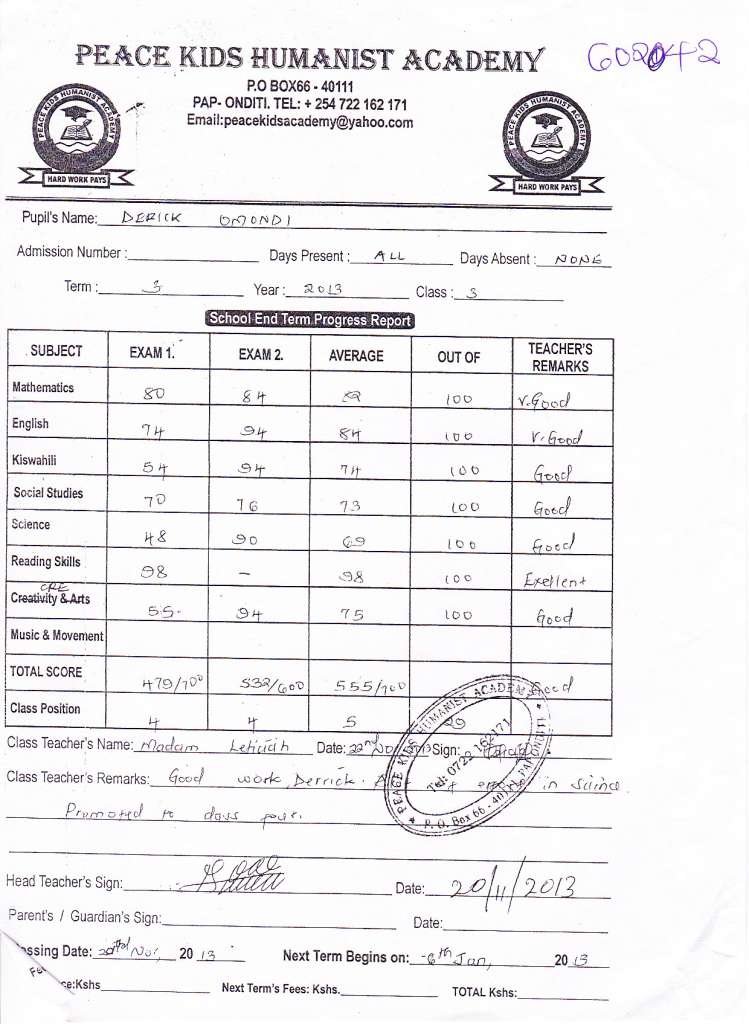 PEACE KIDS HUMANIST ACADEMY
602042
P.O BOX66 - 40111
PAP- ONDITI. TEL: + 254 722 162 171
Email:peacekidsacademy@yahoo.com
PEACE KIDS HUMANIST ACADEMY
HARD WORK PAYS
PEACE KIDS HUMANIST ACADEMY
HARD WORK PAYS
Pupil's Name: DERICK OMONDI
Admission Number : Days Present : ALL Days Absent : NONE
Term : 3 Year : 2013 Class : 3
School End Term Progress Report
SUBJECT EXAM 1. EXAM 2. AVERAGE OUT OF TEACHER'S REMARKS
Mathematics 80 84 82 100 V.Good
English 74 94 84 100 V.Good
Kiswahili 54 94 74 100 Good
Social Studies 70 76 73 100 Good
Science 48 90 69 100 Good
Reading Skills 98 – 98 100 Exellent
CRE
Creativity & Arts 55. 94 75 100 Good
Music & Movement
TOTAL SCORE 479/700 532/600 555/700 Good
Class Position 4 4 5
Class Teacher's Name: Madam Date: 22nd Nov 2013 Sign:
Class Teacher's Remarks: Good work Derrick. in science
Promoted to class four.
PEACE KIDS HUMANIST ACADEMY
Tel: 0722 162171
P. O. Box 66 - 40111, PAP ONDITI
Head Teacher's Sign: Date: 20/11/2013
Parent's / Guardian's Sign: Date:
ssing Date: Nov, 20 13 Next Term Begins on: 6th Jan, 20 13
Fe
ce:Kshs Next Term's Fees: Kshs. TOTAL Kshs: